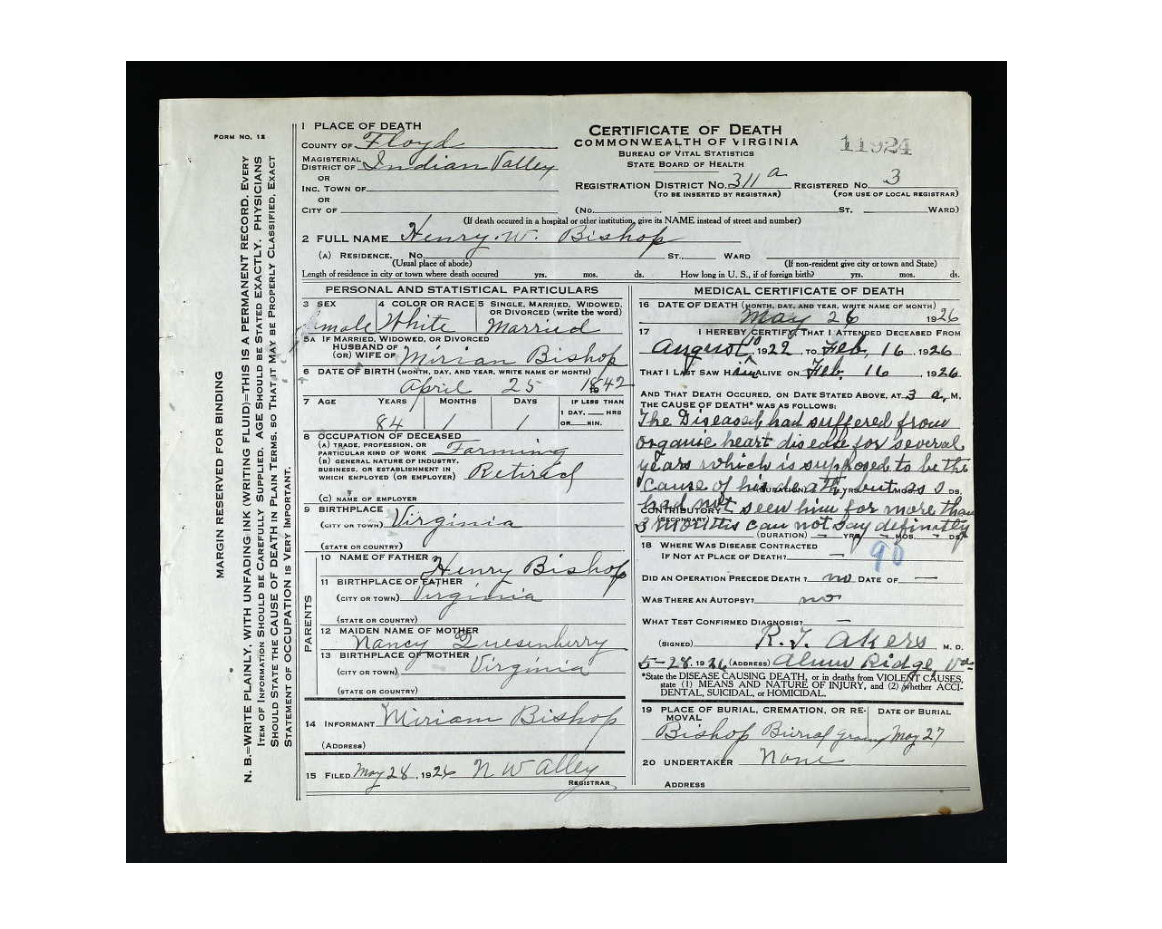 FORM NO. 12
MARGIN RESERVED FOR BINDING
N. B.=WRITE PLAINLY, WITH UNFADING INK (WRITING FLUID)=THIS IS A PERMANENT RECORD. EVERY
ITEM OF INFORMATION SHOULD BE CAREFULLY SUPPLIED. AGE SHOULD BE STATED EXACTLY. PHYSICIANS
SHOULD STATE THE CAUSE OF DEATH IN PLAIN TERMS, SO THAT IT MAY BE PROPERLY CLASSIFIED. EXACT
STATEMENT OF OCCUPATION IS VERY IMPORTANT.
1 PLACE OF DEATH
COUNTY OF Floyd
MAGISTERIAL DISTRICT OF Indian Valley
OR
INC. TOWN OF
OR
CITY OF
CERTIFICATE OF DEATH
COMMONWEALTH OF VIRGINIA
BUREAU OF VITAL STATISTICS
STATE BOARD OF HEALTH
11924
REGISTRATION DISTRICT NO. 311 a REGISTERED NO. 3
(TO BE INSERTED BY REGISTRAR) (FOR USE OF LOCAL REGISTRAR)
(No. ST. WARD)
(If death occured in a hospital or other institution, give its NAME instead of street and number)
2 FULL NAME Henry. W. Bishop
(A) RESIDENCE. No. ST., WARD
(Usual place of abode) (If non-resident give city or town and State)
Length of residence in city or town where death occurred yrs. mos. ds. How long in U. S., if of foreign birth? yrs. mos. ds.
PERSONAL AND STATISTICAL PARTICULARS
3 SEX male
4 COLOR OR RACE White
5 SINGLE, MARRIED, WIDOWED, OR DIVORCED (write the word) Married
5A IF MARRIED, WIDOWED, OR DIVORCED
HUSBAND OF
(OR) WIFE OF Mirian Bishop
6 DATE OF BIRTH (MONTH, DAY, AND YEAR, WRITE NAME OF MONTH)
April 25 1842
7 AGE YEARS MONTHS DAYS IF LESS THAN
1 DAY, HRS
OR MIN.
84 1 1
8 OCCUPATION OF DECEASED
(A) TRADE, PROFESSION, OR
PARTICULAR KIND OF WORK Farming
(B) GENERAL NATURE OF INDUSTRY,
BUSINESS, OR ESTABLISHMENT IN
WHICH EMPLOYED (OR EMPLOYER) Retired
(C) NAME OF EMPLOYER
9 BIRTHPLACE
(CITY OR TOWN) Virginia
(STATE OR COUNTRY)
PARENTS
10 NAME OF FATHER Henry Bishop
11 BIRTHPLACE OF FATHER
(CITY OR TOWN) Virginia
(STATE OR COUNTRY)
12 MAIDEN NAME OF MOTHER
Nancy Quesenberry
13 BIRTHPLACE OF MOTHER
(CITY OR TOWN) Virginia
(STATE OR COUNTRY)
14 INFORMANT Miriam Bishop
(ADDRESS)
15 FILED May 28, 1926 N W Alley
REGISTRAR
MEDICAL CERTIFICATE OF DEATH
16 DATE OF DEATH (MONTH, DAY, AND YEAR, WRITE NAME OF MONTH)
May 26 1926
17 I HEREBY CERTIFY, THAT I ATTENDED DECEASED FROM
August 10 1922 TO Feb. 16 1926
THAT I LAST SAW HIM ALIVE ON Feb. 16, 1926
AND THAT DEATH OCCURED, ON DATE STATED ABOVE, AT 3 a. M.
THE CAUSE OF DEATH* WAS AS FOLLOWS:
The Diseased had suffered from
organic heart disease for several
years which is supposed to be the
cause of his death, but as I
(DURATION) YRS. MOS. DS.
had not seen him for more than
CONTRIBUTORY
(SECONDARY)
3 months can not say definatly
(DURATION) - YRS - MOS. - DS.
18 WHERE WAS DISEASE CONTRACTED
IF NOT AT PLACE OF DEATH? —
90
DID AN OPERATION PRECEDE DEATH? no DATE OF —
WAS THERE AN AUTOPSY? no
WHAT TEST CONFIRMED DIAGNOSIS? —
(SIGNED) R. T. Akers M. D.
5-28. 1926 (ADDRESS) Alum Ridge, Va.
*State the DISEASE CAUSING DEATH, or in deaths from VIOLENT CAUSES,
state (1) MEANS AND NATURE OF INJURY, and (2) whether ACCI-
DENTAL, SUICIDAL, or HOMICIDAL.
19 PLACE OF BURIAL, CREMATION, OR RE-
MOVAL DATE OF BURIAL
Bishop Burial ground May 27
20 UNDERTAKER None
ADDRESS